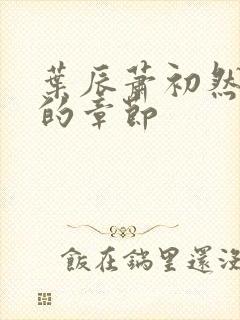 葉辰蕭初然
的章節
飯在鍋里還沒